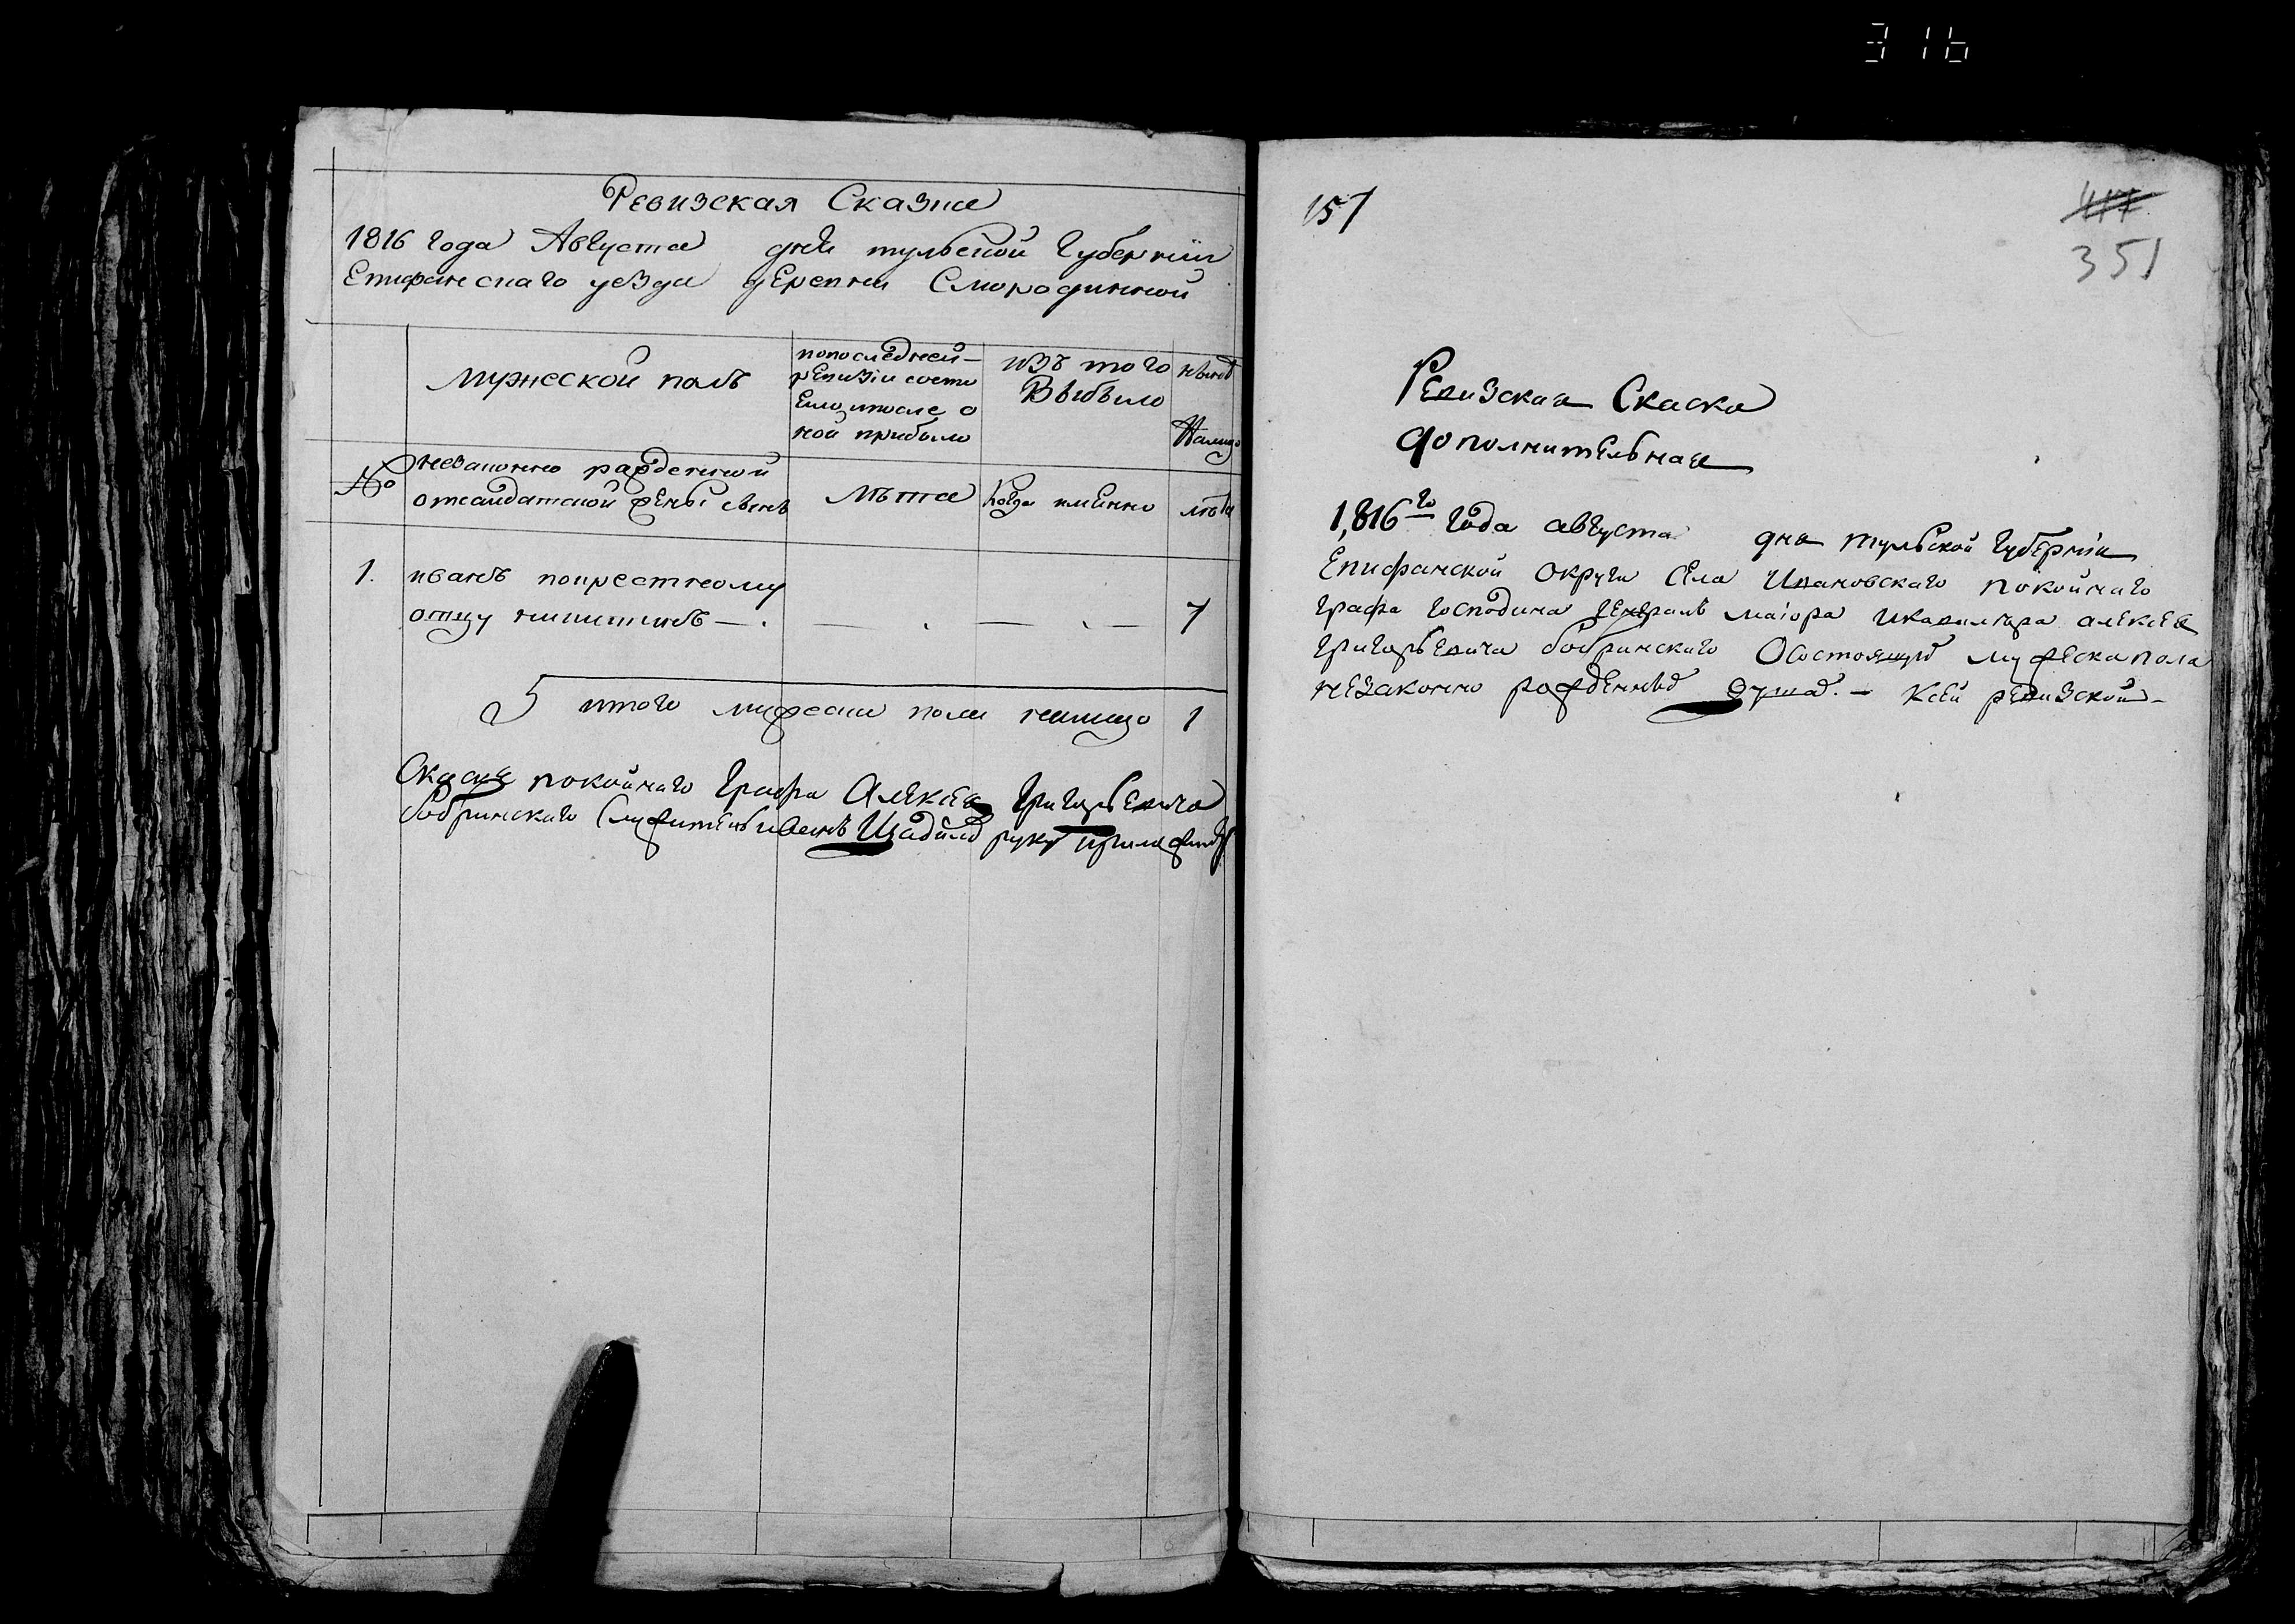 316
Ревизская Сказка
1816 года Августа дня тульской Губернiи
Епифанскаго уезда деревни Смородинной
мужеской полъ
попоследней
ревизiи состо
яло, ипосле о
ной прибыло
изъ того
Выбыло
нынѣ
Налицо
№
незаконно рожденной
отсалдатской жены сынъ
Лѣта
Когда имянно
лѣта
1.
иванъ покрестному
отцу никитинъ — . — . — . — 7
итого мужеска пола налицо 1
Скаске покойнаго Графа Алексея Григорьевича
Бобринскаго Служитель иванъ руку приложилъ
157
417
351
Ревизская Скаска
дополнительная
1,816го года августа дня тульской губернiи
Епифанской округи села Ивановскаго покойнаго
графа господина генералъ маiора икавалера алексея
григорьевича бобринскаго Осостоящих мужеска пола
незаконно рожденных душах. — Ксей ревизской —